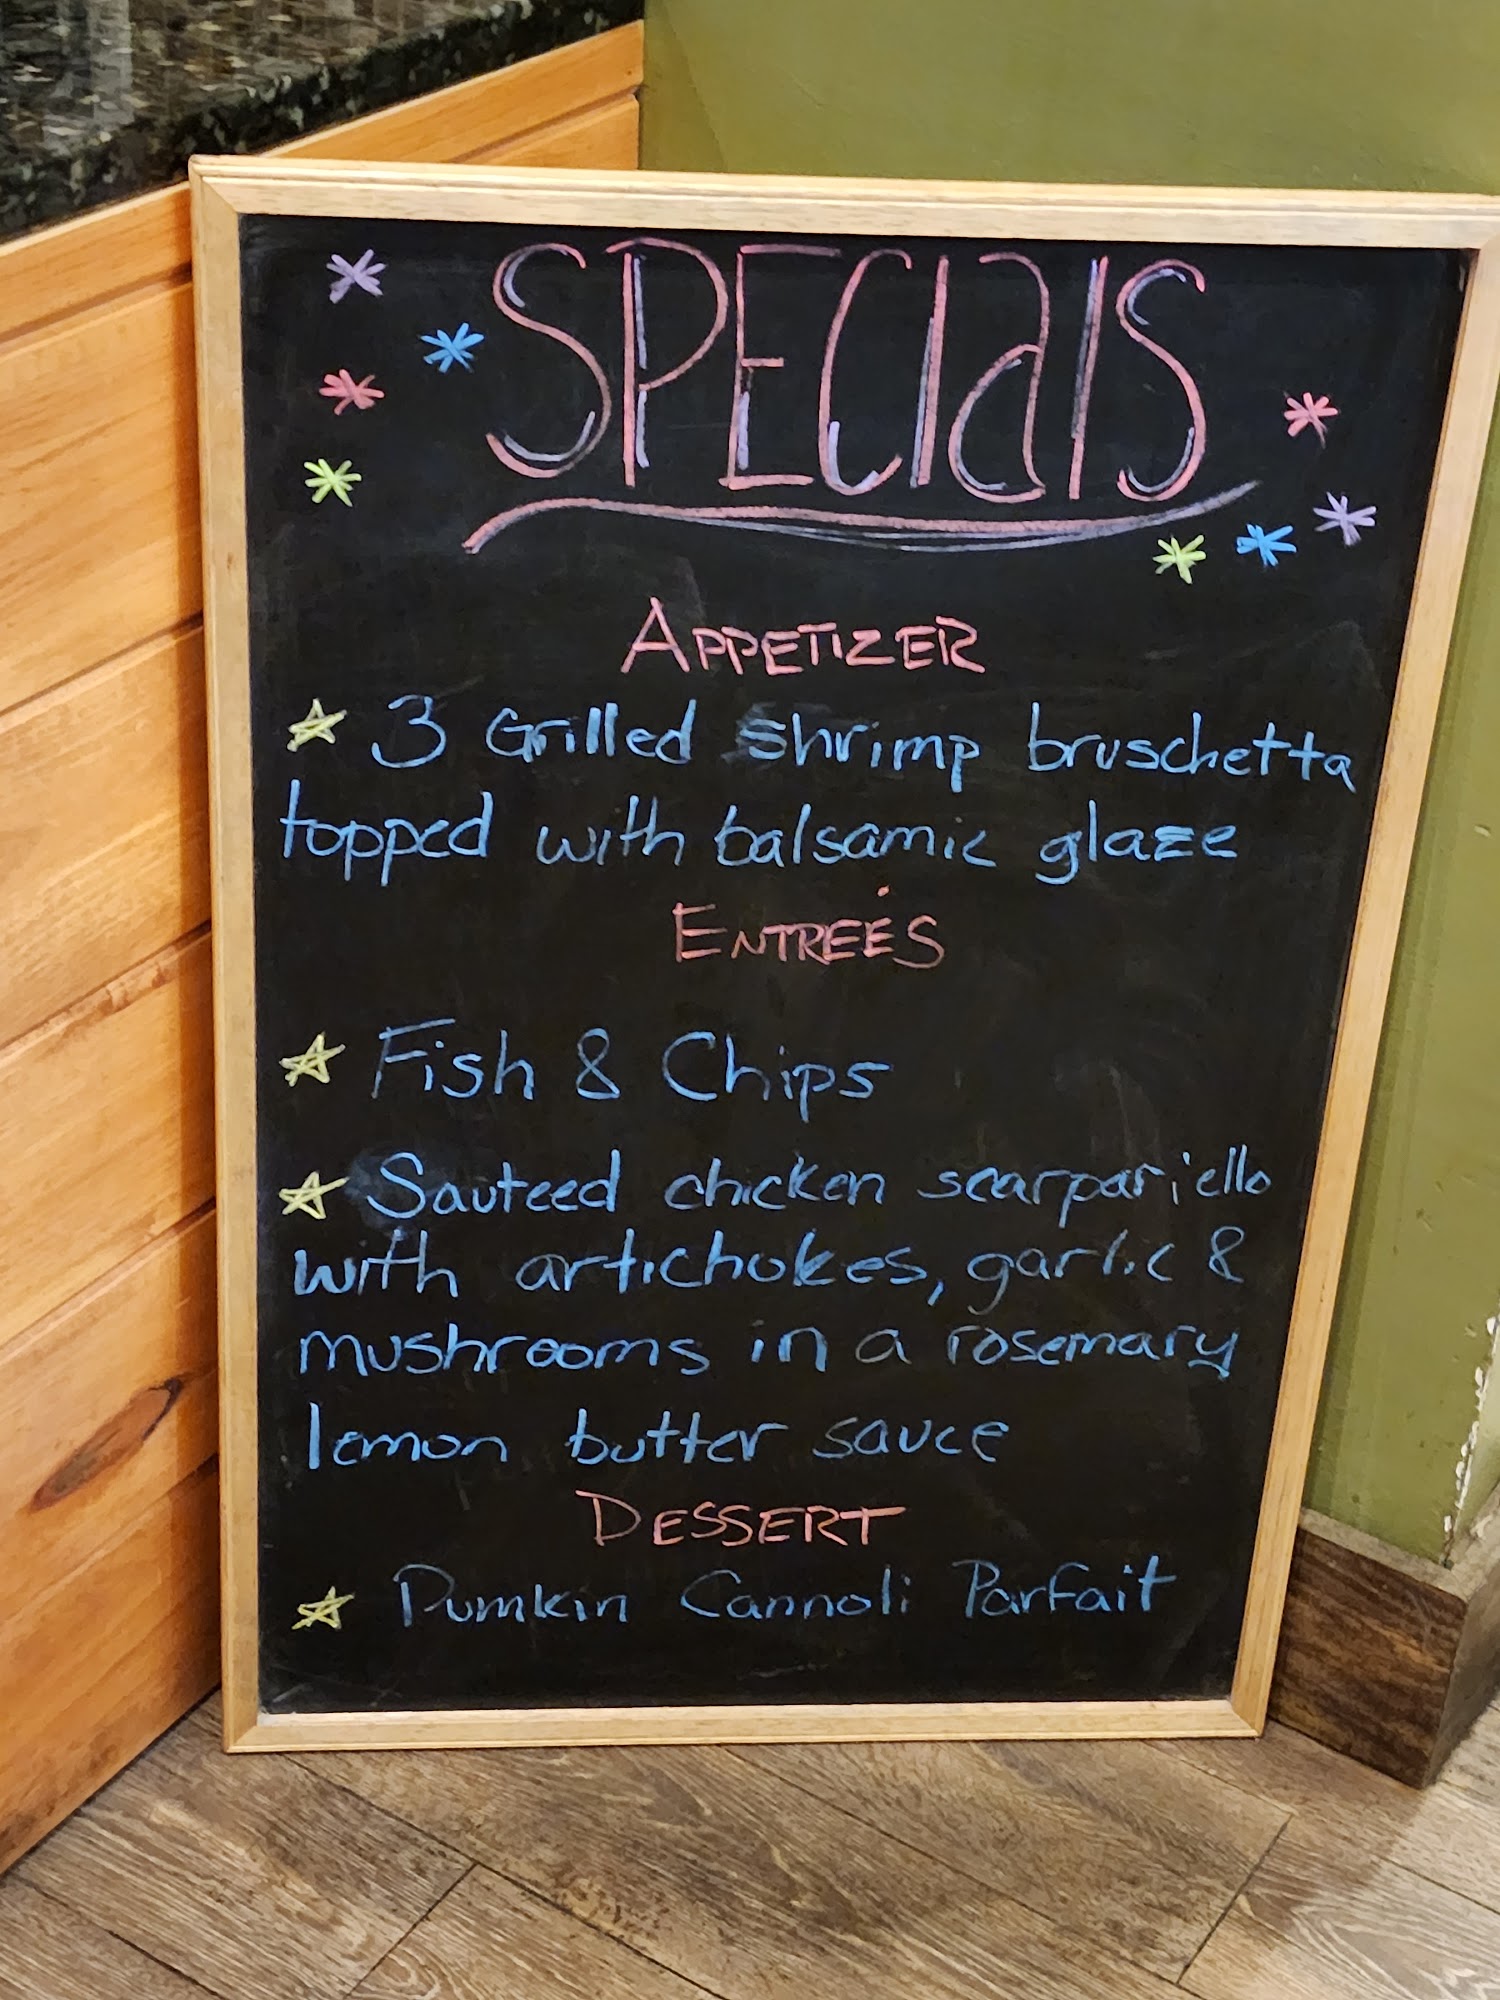 SPECIalS
APPETIZER
3 Grilled shrimp bruschetta
topped with balsamic glaze
ENTREÉS
Fish & Chips
Sauteed chicken scarpariello
with artichokes, garlic &
mushrooms in a rosemary
lemon butter sauce
DESSERT
Pumkin Cannoli Parfait